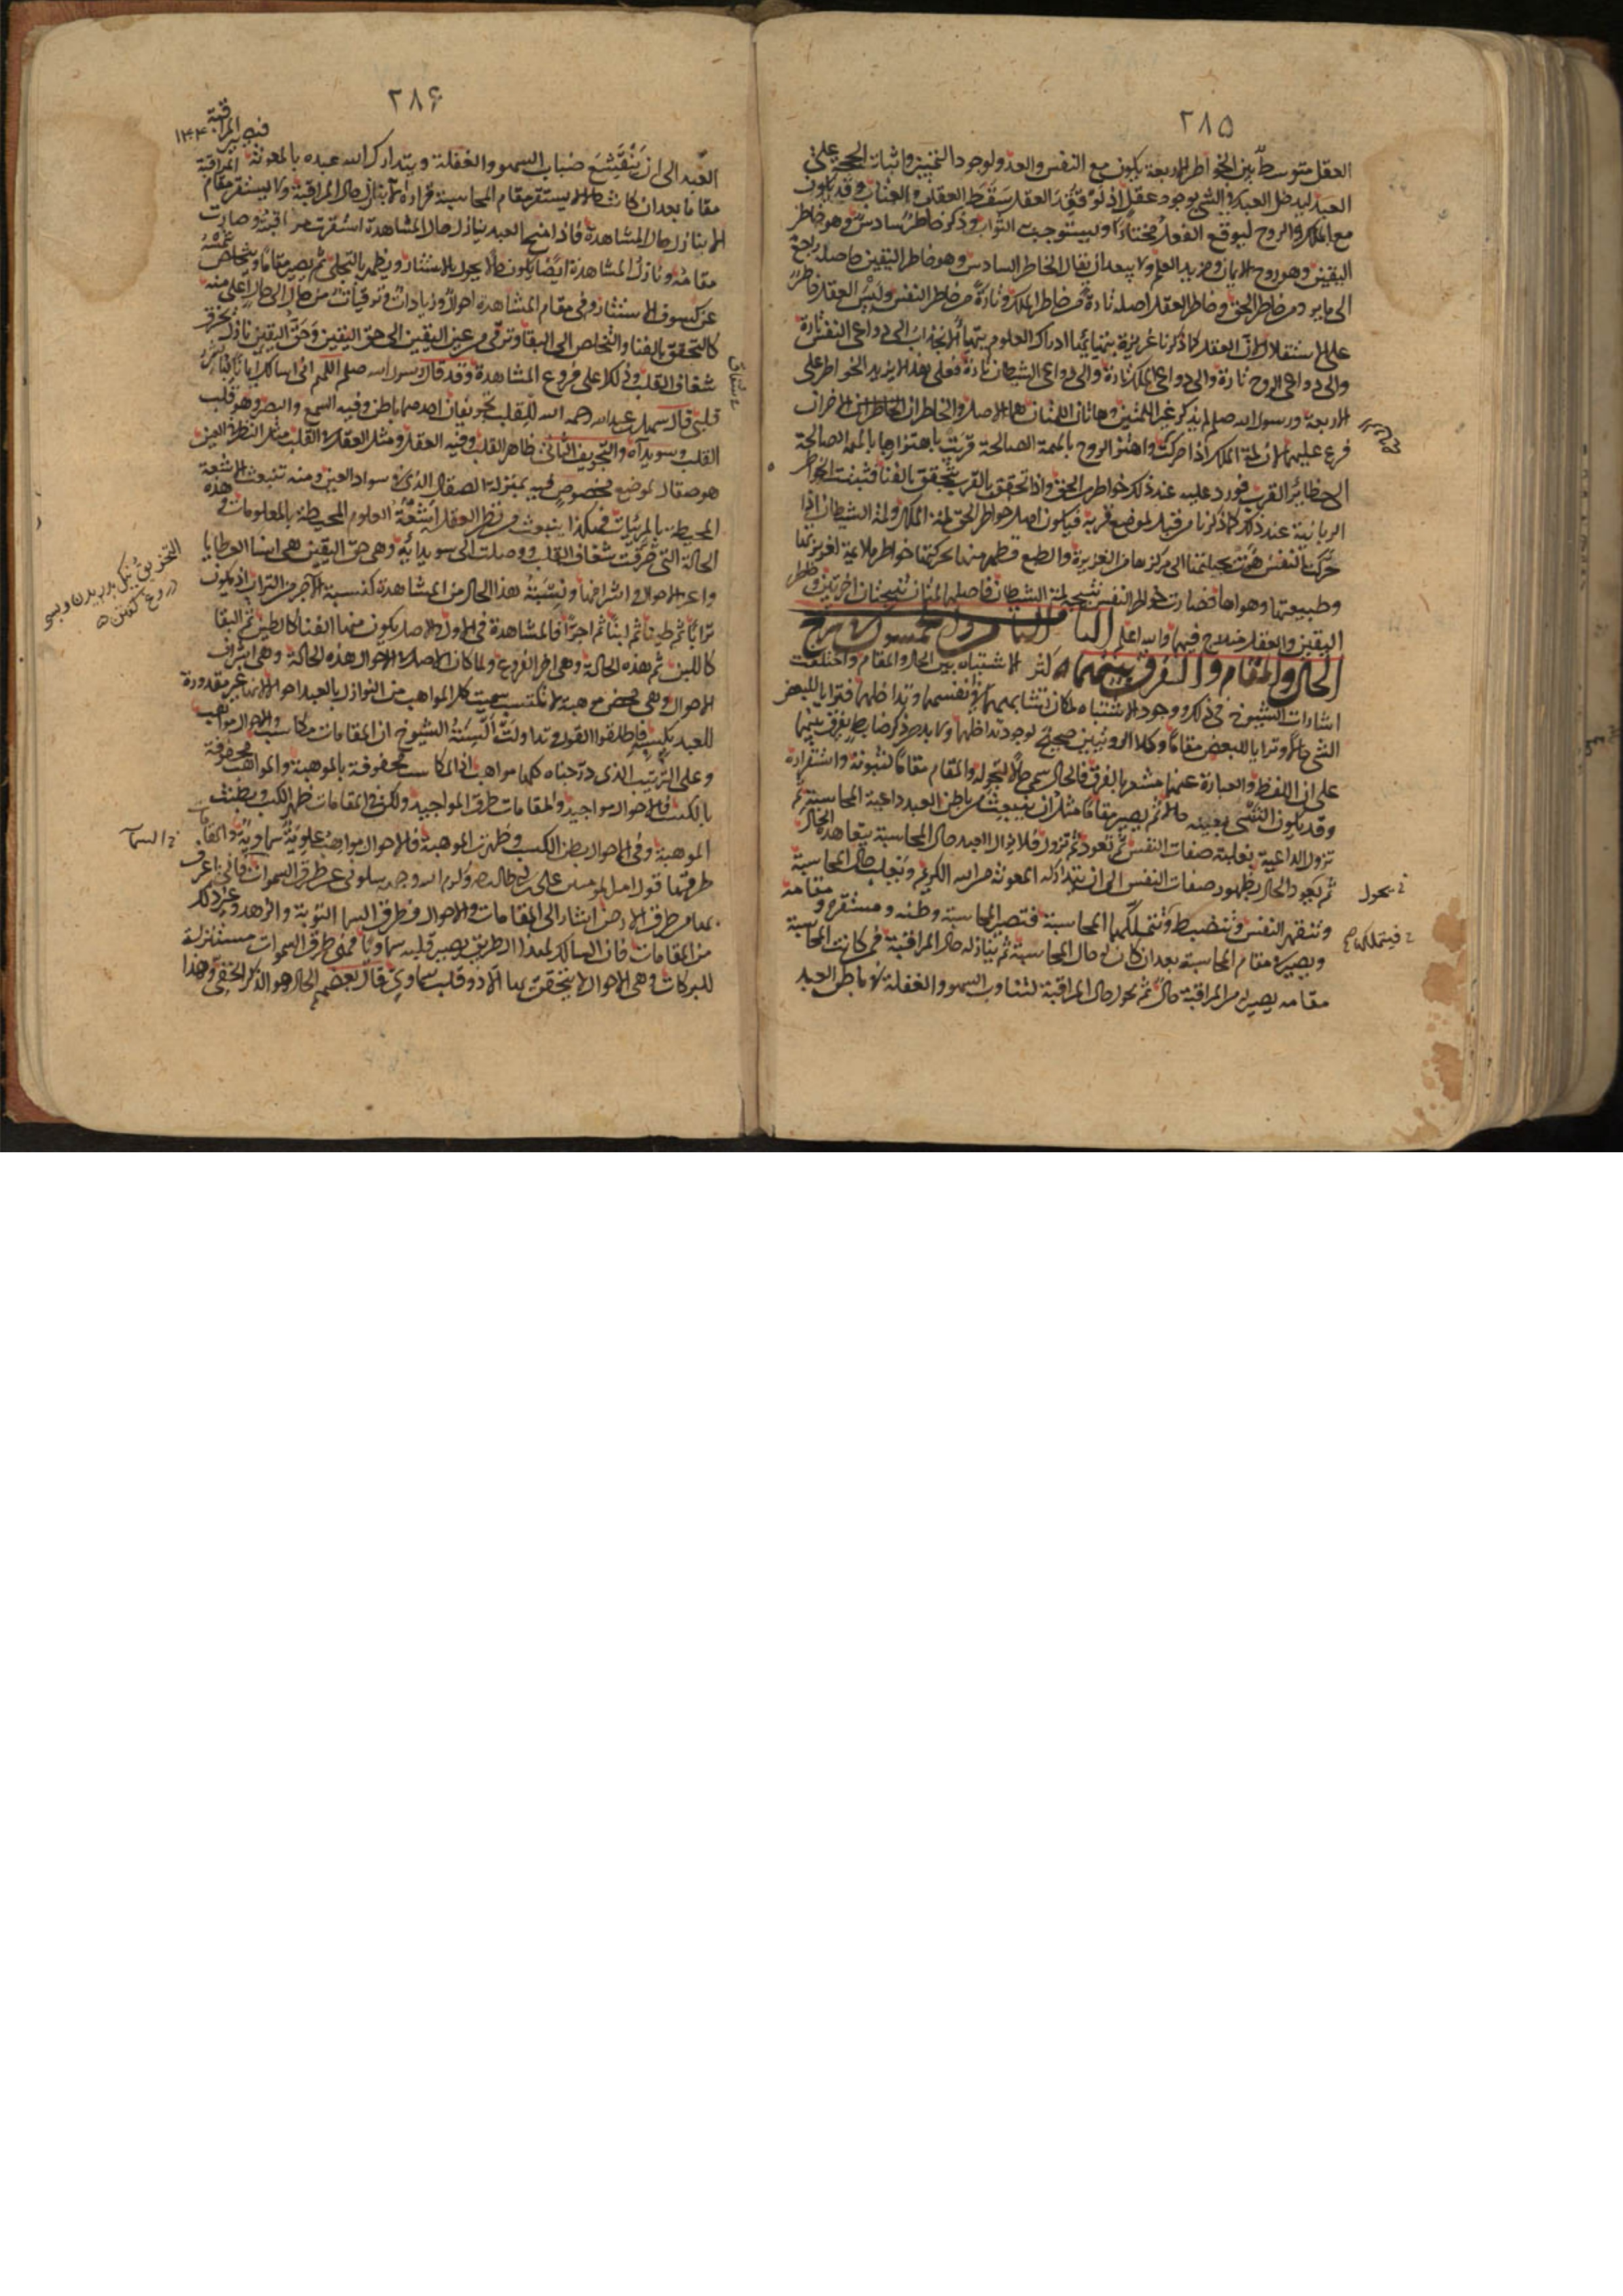 ٢٨٥
العقل متوسط بين الخواطر الاربعة يكون مع النفس والعدو لوجود التمييز واثبات الحجة على
العبد ليدخل العبد في الشئ بوجود عقل اذ لو فقد العقل سقط العقاب والعتاب وقد يكون
مع الملك والروح ليوقع الفعل مختارا ويستوجب الثواب وذكر خاطر سادس وهو خاطر
اليقين وهو روح الايمان ومزيد العلم ولا يبعد ان يقال الخاطر السادس وهو خاطر اليقين حاصله راجع
الى ما يرد من خاطر الحق وخاطر العقل اصله تارة من خاطر الملك وتارة من خاطر النفس وليس للعقل خاطر
على الاستقلال لان العقل كما ذكرنا غريزة يتهيأ بها ادراك العلوم ويتهيأ بها الانجذاب الى دواعى النفس تارة
والى دواعى الروح تارة والى دواعى الملك تارة والى دواعى الشيطان تارة فعلى هذا لا يزيد الخواطر على
الاربعة ورسول الله صلعم لم يذكر غير اللمتين وهاتان اللمتان هما الاصل والخاطران الاخران
فرع عليهما لان لمة الملك اذا حركت الروح واهتز الروح بالهمة الصالحة قربت باهتزازها بالهمة الصالحة
الى حظائر القرب فورد عليه عند ذلك خواطر من الحق واذا تحقق بالقرب يتحقق بالفنا فتثبت الخواطر
الربانية عند ذلك كما ذكرنا من قبل لموضع قربه فيكون اصل خواطر الحق لمة الملك ولمة الشيطان اذا
حركت النفس هوت بجبلتها الى مركزها من الغريزة والطبع فظهر منها لحركتها خواطر ملايمة لغريزتها
وطبيعتها وهواها فصارت خواطر النفس نتيجة لمة الشيطان فاصلها لمتان وتنتجان اخريين وخاطر
اليقين والعقل مندرج فيهما والله اعلم الباب الثامن والخمسون في شرح
الحال والمقام والفرق بينهما كثر الاشتباه بين الحال والمقام واختلفت
اشارات الشيوخ في ذلك ووجود الاشتباه لمكان تشابههما في نفسهما وتداخلهما فترايا للبعض
الشئ حالا وترايا للبعض مقاما وكلا الرويتين صحيح لوجود تداخلهما ولا بد من ذكر ضابط يفرق بينهما
على ان اللفظ والعبارة عنهما مشعر بالفرق فالحال سمى حالا لتحوله والمقام مقاما لثبوته واستقراره
وقد يكون الشئ بعينه حالا ثم يصير مقاما مثل ان ينبعث من باطن العبد داعية المحاسبة ثم
تزول الداعية بغلبة صفات النفس ثم تعود ثم تزول فلا يزال العبد حال المحاسبة يتعاهده الحال
ثم يعود الحال بظهور صفات النفس الى ان يتداركه المعونة من الله الكريم وتغلب حال المحاسبة
وتنقهر النفس وتنضبط وتتملكها المحاسبة فتصير المحاسبة وطنه ومستقره ومقامه
ويصير في مقام المحاسبة بعد ان كان له حال المحاسبة ثم ينازله حال المراقبة فمن كانت المحاسبة
مقامه يصير له من المراقبة حال ثم يحول حال المراقبة لتناوب السهو والغفلة في باطن العبد
يحول
فيتملكها
٢٨٦
العبد الى ان ينقشع ضباب السهو والغفلة ويتدارك الله عبده بالمعونة فتصير المراقبة
مقاما بعد ان كانت حالا ولا يستقر مقام المحاسبة قراره الا بنازل حال المراقبة ولا يستقر مقام
الا بنازل حال المشاهدة فاذا منح العبد بنازل حال المشاهدة استقرت مراقبته وصارت
مقامه ونازل المشاهدة ايضا يكون حالا يحول بالاستتار ويظهر بالتجلى ثم يصير مقاما ويتخلص شمسه
عن كسوف الاستتار وفى مقام المشاهدة احوال وزيادات وترقيات من حال الى حال اعلى منه
كالتحقق بالفنا والتخلص الى البقا وترقى من عين اليقين الى حق اليقين وحق اليقين نازل يخرق
شغاف القلب وذلك اعلى فروع المشاهدة وقد قال رسول الله صلعم اللهم انى اسالك ايمانا يباشر
قلبى قال سهل بن عبد الله رحمه الله للقلب تجويفان احدهما باطن وفيه السمع والبصر وهو قلب
القلب وسويداه والتجويف الثانى ظاهر القلب وفيه العقل ومثل العقل في القلب مثل النظر في العين
هو صقال لموضع مخصوص فيه بمنزلة الصقال الذى في سواد العين ومنه تنبعث الاشعة
المحيطة بالمرئيات فهكذا ينبعث من نظر العقل اشعة العلوم المحيطة بالمعلومات وهذه
الحالة التى خرقت شغاف القلب ووصلت الى سويدائه وهى حق اليقين هى اسنا العطايا
واعز الاحوال واشرافها ونسبة هذا الحال من المشاهدة كنسبة الآجر من التراب اذ يكون
ترابا ثم طينا ثم لبنا ثم اجرا فالمشاهدة هى الاول والاصل يكون منها الفنا كالطين ثم البقا
كاللبن ثم هذه الحالة وهى اخر الفروع ولما كان الاصل في الاحوال هذه الحالة وهى اشرف
الاحوال وهى محض موهبة لا تكتسب سميت كل المواهب من النوازل بالعبد احوالا لانها غير مقدورة
للعبد بكسبه فاطلقوا القول وتداولت السنة الشيوخ ان المقامات مكاسب والاحوال مواهب
وعلى الترتيب الذى درجناه كلها مواهب اذ المكاسب محفوفة بالموهبة والمواهب محفوفة
بالكسب فالاحوال مواجيد والمقامات طرق المواجيد ولكن في المقامات ظهر الكسب وبطنت
الموهبة وفى الاحوال بطن الكسب وظهرت الموهبة فالاحوال مواهب علوية سماوية والمقامات
طرقها وقول امير المومنين على بن ابى طالب كرم الله وجهه سلونى عن طرق السموات فانى اعرف
بها من طرق الارض اشار الى المقامات والاحوال فطرق السما التوبة والزهد وغير ذلك
من المقامات فان السالك لهذا الطريق يصير قلبه سماويا فهى طرق السموات مستنزلة
للبركات وهى الاحوال لا يتحقق بها الا ذو قلب سماوى قال بعضهم الحال هو الذكر الخفى وهذا
السما